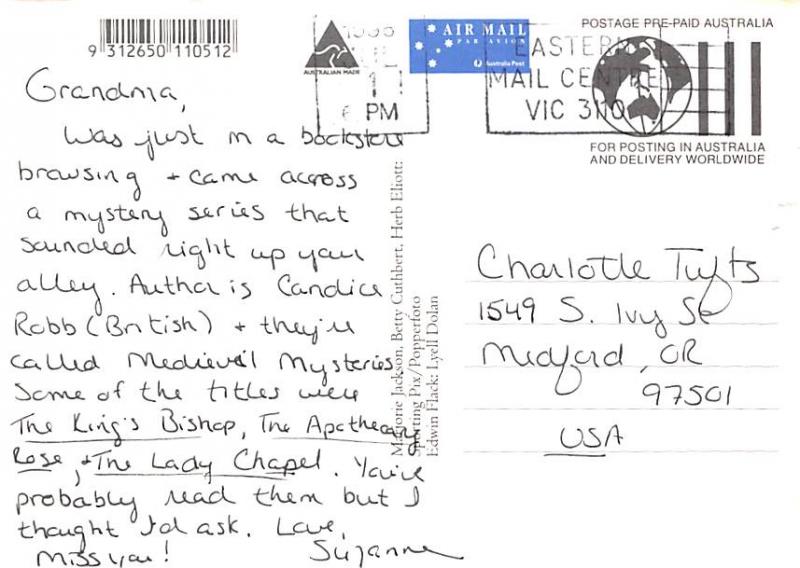 9 312650 110512
AUSTRALIAN MADE
PM
AIR MAIL
PAR AVION
Australia Post
EASTERN
MAIL CENTRE
VIC 3110
POSTAGE PRE-PAID AUSTRALIA
FOR POSTING IN AUSTRALIA
AND DELIVERY WORLDWIDE
Grandma,
Was just in a bookstore
browsing + came across
a mystery series that
sounded right up your
alley. Author is Candice
Robb (British) + they're
called Medieval Mysteries
Some of the titles were
The King's Bishop, The Apothecary
Rose, + The Lady Chapel. You've
probably read them but I
thought I'd ask. Love,
Miss you! Suzanne
Marjorie Jackson, Betty Cuthbert, Herb Elliott:
Sporting Pix/Popperfoto
Edwin Flack: Lyell Dolan
Charlotte Tufts
1549 S. Ivy St
Medford, OR
97501
USA